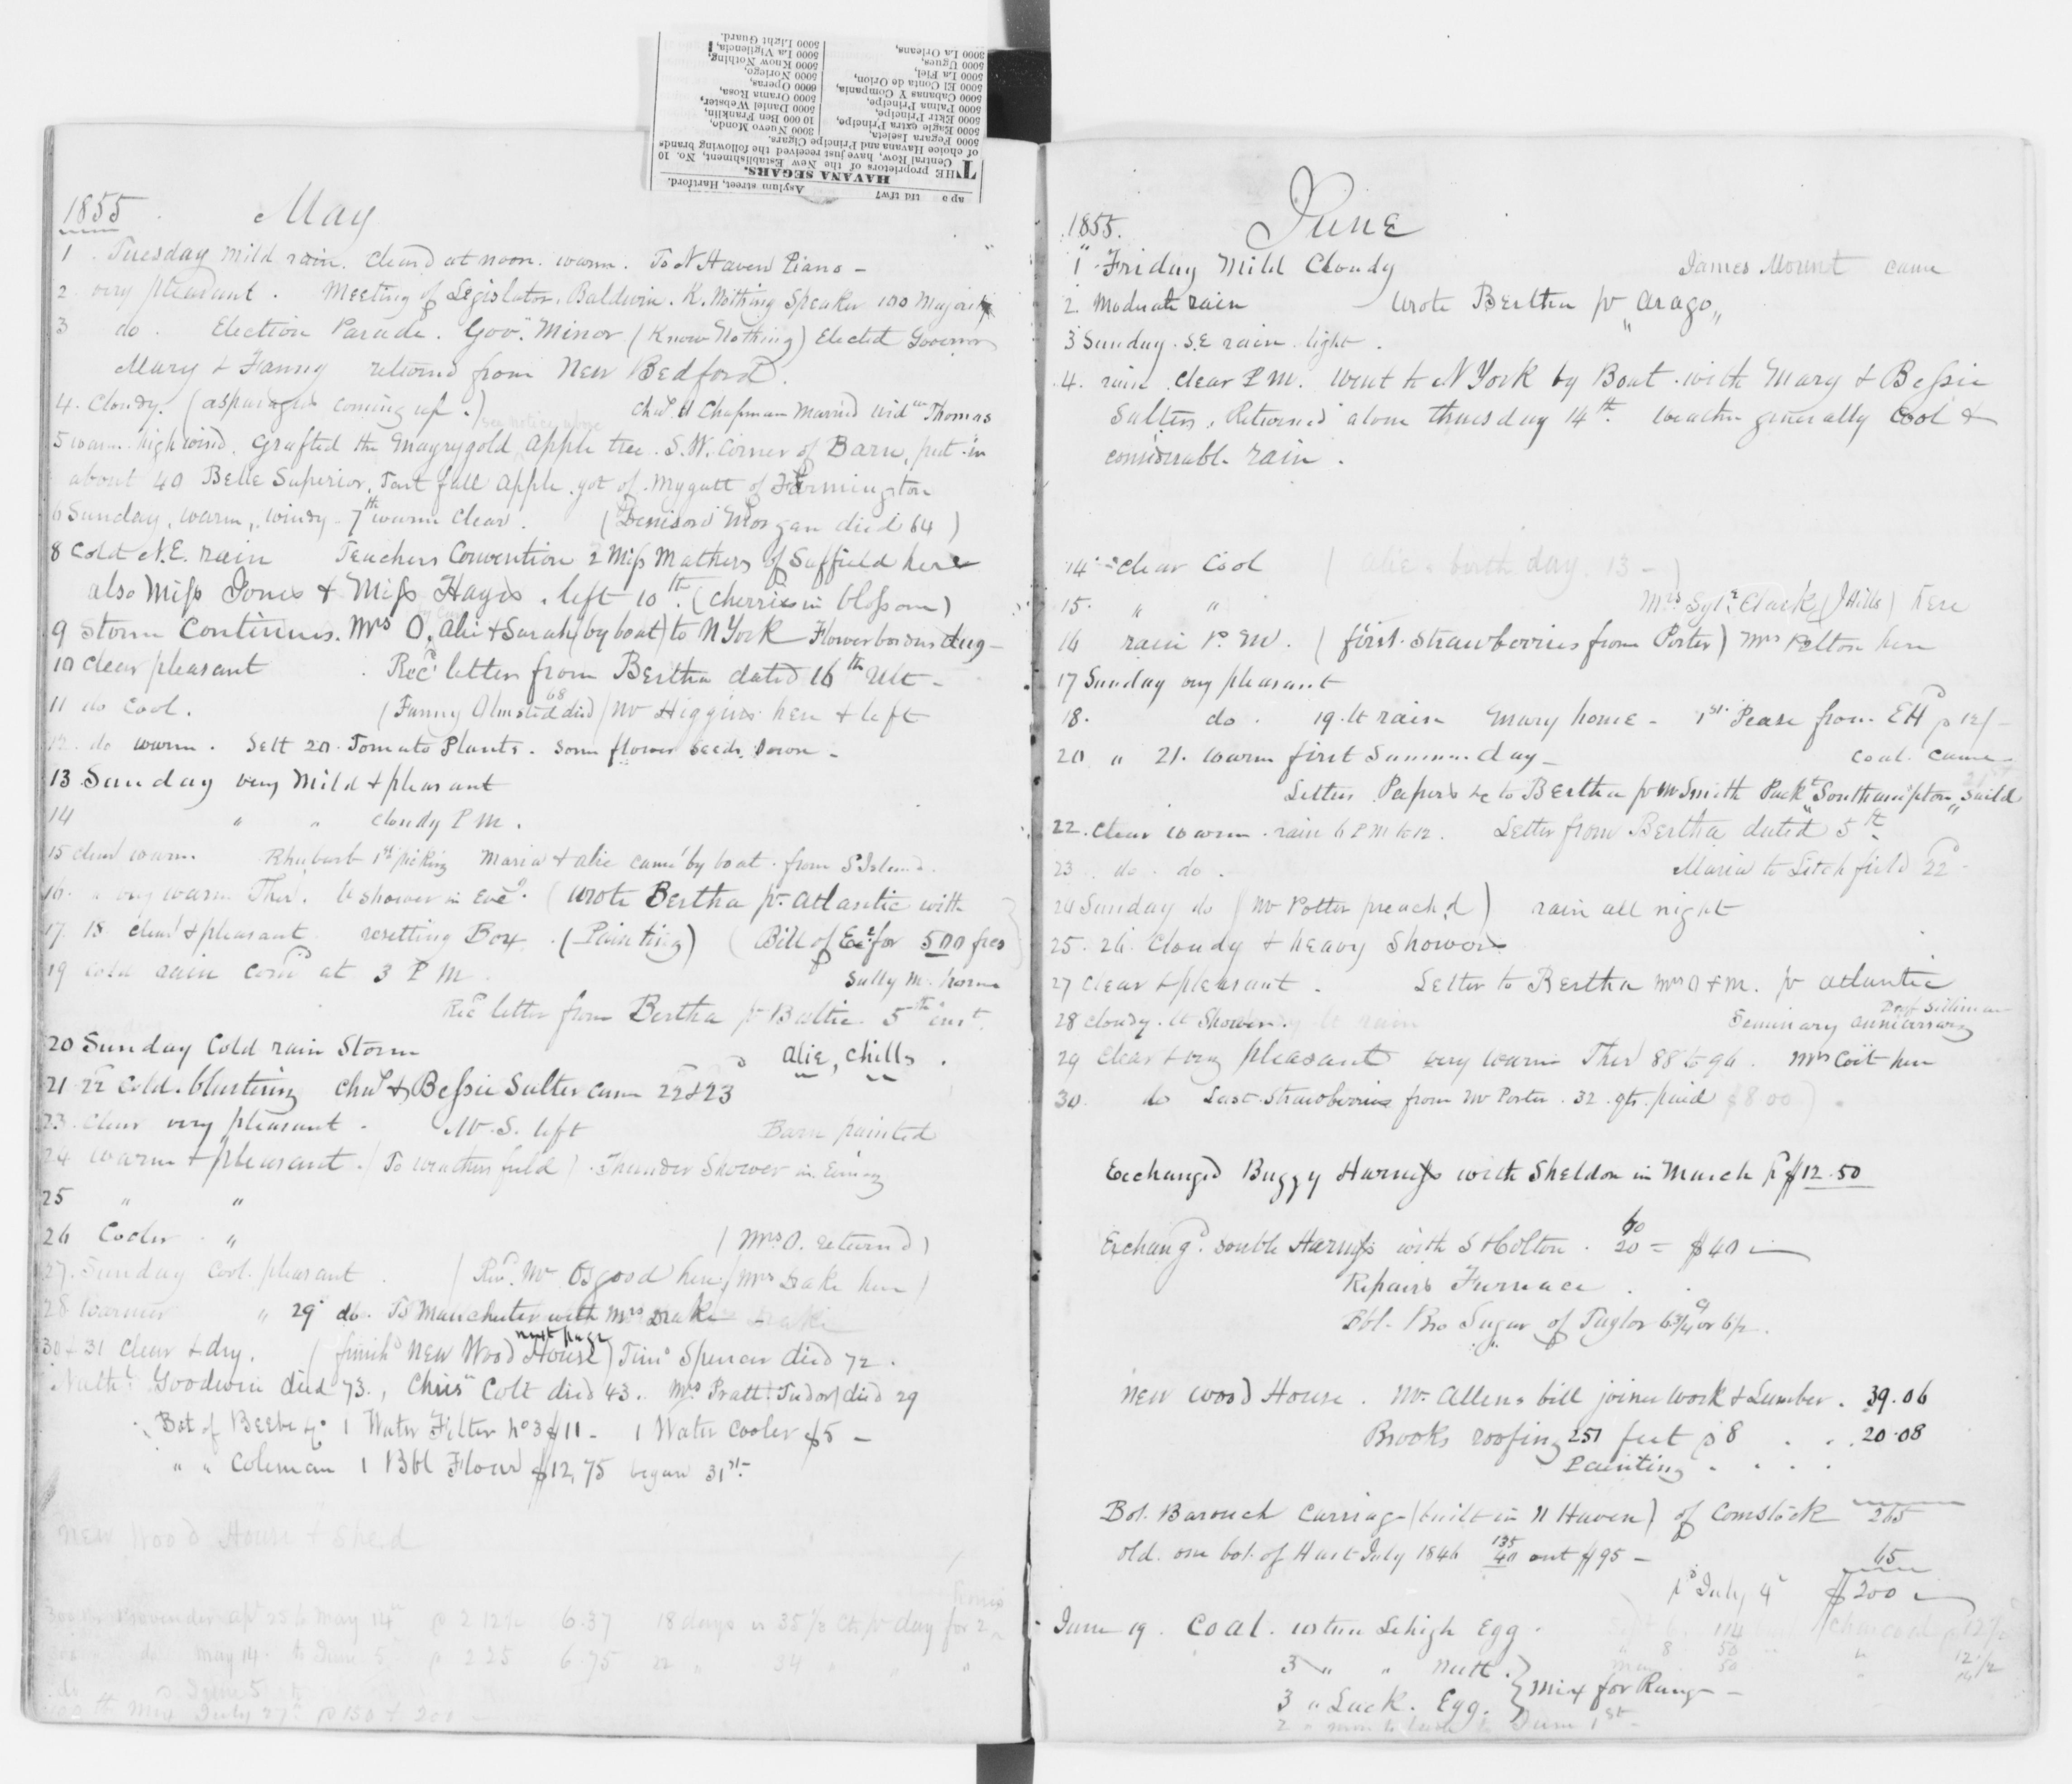 ap 5 tfd tfw7 Asylum street, Hartford.
HAVANA SEGARS.
THE proprietors of the New Establishment, No. 10
Central Row, have just received the following brands
of choice Havana and Principe Cigars.
5000 Fegara Iseleta,
5000 Eagle extra Principe,
5000 Ektr Principe,
5000 Palma Principe,
5000 Cabanas Y Compania,
5000 El Conta de Orion,
5000 La Fiel,
5000 Ugues,
3000 La Orleans,
3000 Nuevo Mondo,
10 000 Ben Franklin,
5000 Daniel Webster,
5000 Orama Rosa,
6000 Operas,
5000 Noriego,
5000 Know Nothing,
5000 La Vigilencia,
5000 Light Guard.
1855 May
1 Tuesday mild rain. Cleard at noon. warm. To N Haven Piano -
2 very pleasant. Meeting of Legislator. Baldwin. K. Nothing Speaker 100 Majority
3 do. Election Parade. Gov. Minor (Know Nothing) Elected Governor
Mary & Fanny returned from New Bedford.
4. Cloudy. (asparagus coming up.) Chas. H Chapman Married Widw Thomas
see notice above
5 warm. high wind. Grafted the Marygold apple tree. S.W. Corner of Barn, put in
about 40 Belle Superior, Tart fall apple. got of Mygatt of Farmington
6 Sunday, warm, windy. 7th warm Clear. (Denison Morgan died 64)
8 Cold N.E. rain Teachers Convention 2 Miss Mathers of Suffield here
also Miss Jones & Miss Hayes. left 10th. (Cherries in blossom)
9 Storm Continues. Mrs O. Alie & Sarah (by boat) to N York Flower borders dug -
10 Clear pleasant Recd letter from Bertha dated 16th Ult -
11 do Cool. (Fanny Olmsted died 68) Mr Higgins here & left
12. do warm. Sett 20 Tomato Plants. Some flower seeds sown -
13 Sunday very Mild & pleasant
14 " " Cloudy P M.
15 Clear warm. Rhubarb 1st picking Maria & alie came by boat. from S Island.
16. " very warm Ther. lt shower in Eveg. (wrote Bertha pr Atlantic with
17. 18 clear & pleasant resetting Box. (Painting) (Bill of Exe for 500 fres
19 Cold rain comd at 3 P M Sally M. home
Recd letter from Bertha pr Baltic 5th inst.
20 Sunday Cold rain Storm Alie, chills.
21 22 Cold. blustering Chas & Bessie Salter came 22 & 23
23. Clear very pleasant - Mr. S. left Barn painted
24 warm & pleasant. (To Weathersfield) Thunder Shower in Evening
25 " "
26 Cooler " (Mrs O. returned)
27. Sunday Cool. pleasant. (Revd. Mr Osgood here) (Mrs Drake here)
28 Warmer " 29 do. To Manchester with Mrs Drake
30 & 31 Clear & dry. (finishd New Wood House) Timo Spencer died 72.
next page
Nathl Goodwin died 73., Chrisr Colt died 43. Mrs Pratt (Tudor) died 29
Bot of Beebe & Co 1 Water Filter No 3 $11 - 1 Water Cooler $5 -
" " Coleman 1 Bbl Flour $12,75 began 31st.
New Wood House & Shed
Provender apl 25 to May 14th @ 2 12½ 6.37 18 days is 35⅓ Cts pr day for 2 horses
do May 14. to June 5 @ 2 25 6.75 22 " 34 " " "
do June 5 to
1855. June
1 Friday Mild Cloudy James Mount came
2. Moderate rain Wrote Bertha pr "Arago"
3 Sunday. S.E rain. light.
4. rain. Clear P.M. Went to N York by Boat. with Mary & Bessie
Salter. Returned alone thursday 14th. Weather generally Cool &
considerable rain.
14. Clear Cool (Alie's birth day. 13 -)
15. " " Mrs Sylr Clark (J Hills) here
16 rain P. M. (first strawberries from Porter) Mrs Pelton here
17 Sunday very pleasant
18. do. 19. lt rain Mary home - 1st Pease from EH p 12/-
20 " 21. warm first Summer day - Coal came -
Letters Papers &c to Bertha pr Mr Smith Packt "Southampton" Saild 21st
22. Clear warm. rain 6 P M to 12. Letter from Bertha dated 5th.
23. do. do. Maria to Litchfield 22d.
24 Sunday do (Mr Potter preachd) rain all night
25. 26. Cloudy & heavy Showers
27 Clear & pleasant. Letter to Bertha Mrs O & M. pr Atlantic
28 Cloudy. lt Shower. Seminary anniversary Prof Silliman
29 Clear & very pleasant very warm Ther 88 to 96. Mrs Coit here
30. do Last Strawberries from Mr Porter. 32 qts. paid $8 00)
Exchanged Buggy Harness with Sheldon in March p $12.50
Exchangd. double Harness with S Holton. 60 20 = $40 -
Repairs Furnace.
Bbl. Bro Sugar of Taylor 6¾ or 6½.
New Wood House. Mr. Allens bill joiner work & Lumber. 39.06
Brooks roofing 251 feet @ 8 . . . 20.08
Painting . . . .
Bot. Barouch Carriage (built in N Haven) of Comstock 265
old one bot. of Hart July 1846 135 40 out $95 - 65
pd July 4 $200 -
June 19. Coal. ton Lehigh Egg.
3 " " Nutt.
3 " Lack. Egg. } Mix for Range -